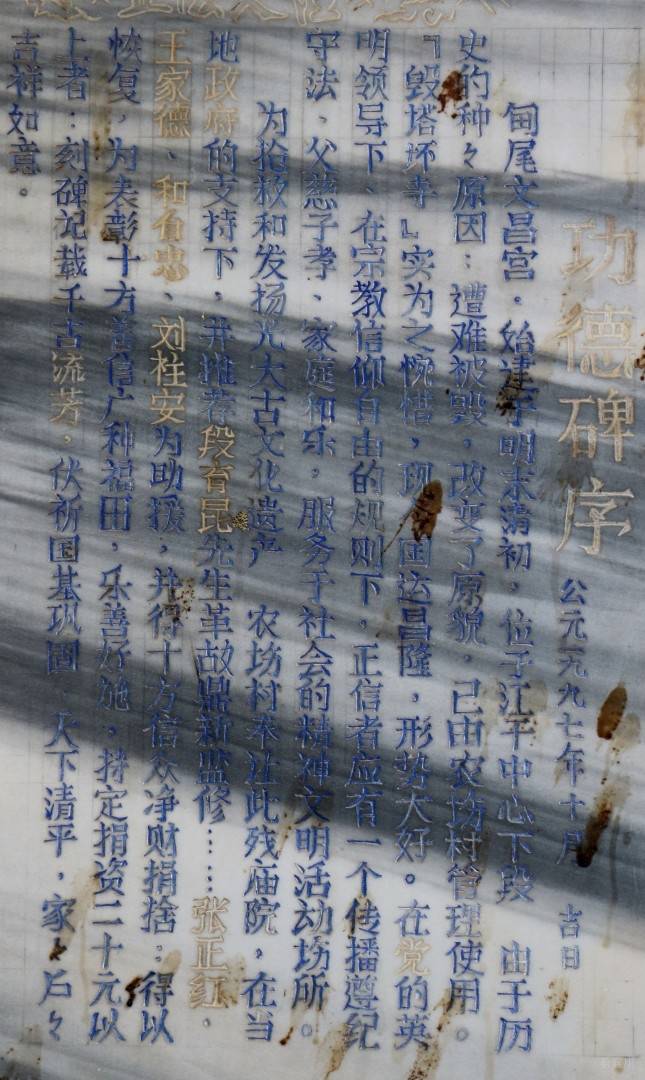 功德碑序
公元一九九七年十月 吉日
甸尾文昌宫。始建于明末清初，位于江干中心下段 由于历
史的种々原因：遭难被毁，改变了原貌，己由农坊村管理使用。
『毁塔坏寺』实为之惋惜，现国运昌隆，形势大好。在党的英
明领导下、在宗教信仰自由的规则下，正信者应有一个传播遵纪
守法、父慈子孝、家庭和乐，服务于社会的精神文明活动场所。
为抢救和发扬光大古文化遗产 农坊村奉注此残庙院，在当
地政府的支持下，并推荐段育昆先生革故鼎新监修……张正红、
王家德、和有忠、刘柱安为助援，并得十方信众净财捐捨：得以
恢复，为表彰十方善信广种福田，乐善好施，持定捐资二十元以
上者：刻碑记载千古流芳，伏祈国基巩固 天下清平，家々户々
吉祥如意。